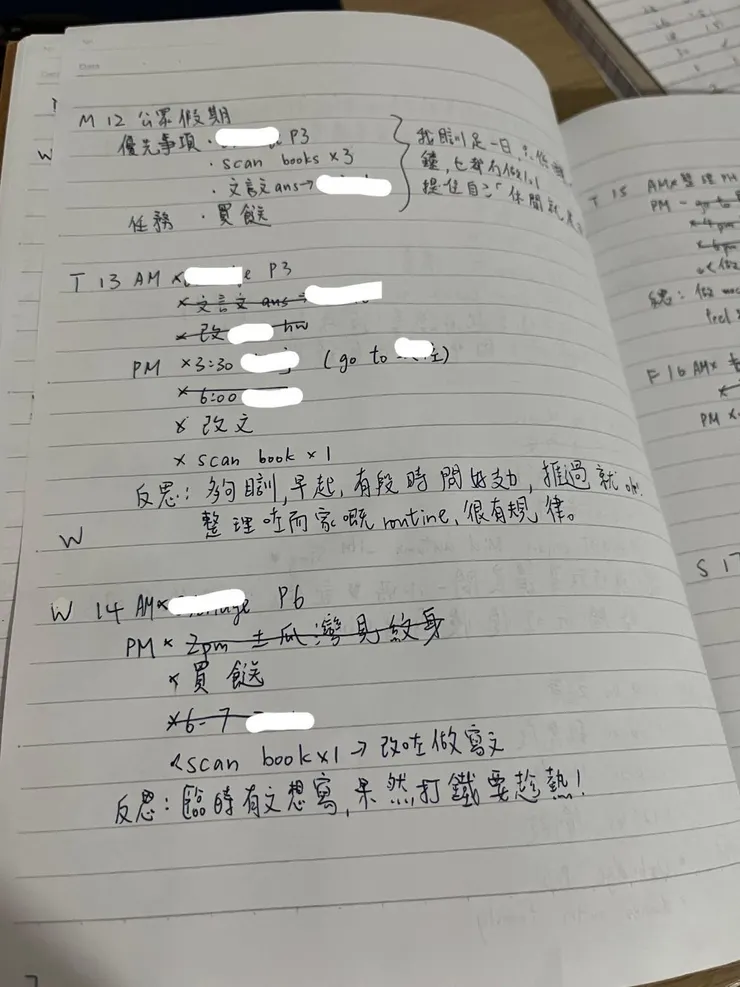 M 12 公眾假期
優先事項 · P3
· scan books × 3
· 文言文 ans →
任務 · 買餸
我瞓足一日，
鐘，乜都冇做lol
提住自己「休閒就
T 13 AM × e P3
× 文言文 ans
× 改 hw
PM × 3:30 (go to
× 6:00
× 改文
× scan book × 1
反思：夠瞓，早起，有段時間好攰，推過就ok!
整理咗而家嘅 routine，很有規律。
W
W 14 AM × P6
PM × 2pm 土瓜灣見紋身
× 買餸
× 6-7
× scan book × 1 → 改咗做寫文
反思：臨時有文想寫，果然打鐵要趁熱！
W
T 15 AM × 整理
PM - go to
× 4pm
× 6pm
總：做
feel
F 16 AM ×
PM ×
S 17